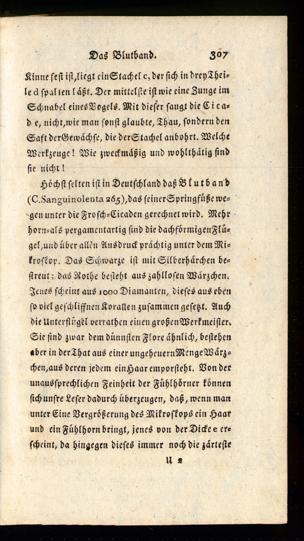 Das Blutband. 307
Kinne fest ist, liegt ein Stachel c, der sich in drey Thei-
le d spalten läßt. Der mittelste ist wie eine Zunge im
Schnabel eines Vogels. Mit dieser saugt die Cica-
de, nicht, wie man sonst glaubte, Thau, sondern den
Saft der Gewächse, die der Stachel anbohrt. Welche
Werkzeuge! Wie zweckmäßig und wohlthätig sind
sie nicht!
Höchst selten ist in Deutschland daß Blutband
(C. Sanguinolenta 265), das seiner Springfüße we-
gen unter die Frosch-Cicaden gerechnet wird. Mehr
horn- als pergamentartig sind die dachförmigen Flü-
gel, und über allen Ausdruck prächtig unter dem Mi-
kroskop. Das Schwarze ist mit Silberhärchen be-
streut: das Rothe besteht aus zahllosen Wärzchen.
Jenes scheint aus 1000 Diamanten, dieses aus eben
so viel geschliffnen Korallen zusammen gesetzt. Auch
die Unterflügel verrathen einen großen Werkmeister.
Sie sind zwar dem dünnsten Flore ähnlich, bestehen
aber in der That aus einer ungeheuern Menge Wärz-
chen, aus deren jedem ein Haar emporsteht. Von der
unaussprechlichen Feinheit der Fühlhörner können
sich unsre Leser dadurch überzeugen, daß, wenn man
unter Eine Vergrößerung des Mikroskops ein Haar
und ein Fühlhorn bringt, jenes von der Dicke e er-
scheint, da hingegen dieses immer noch die zärteste
U 2